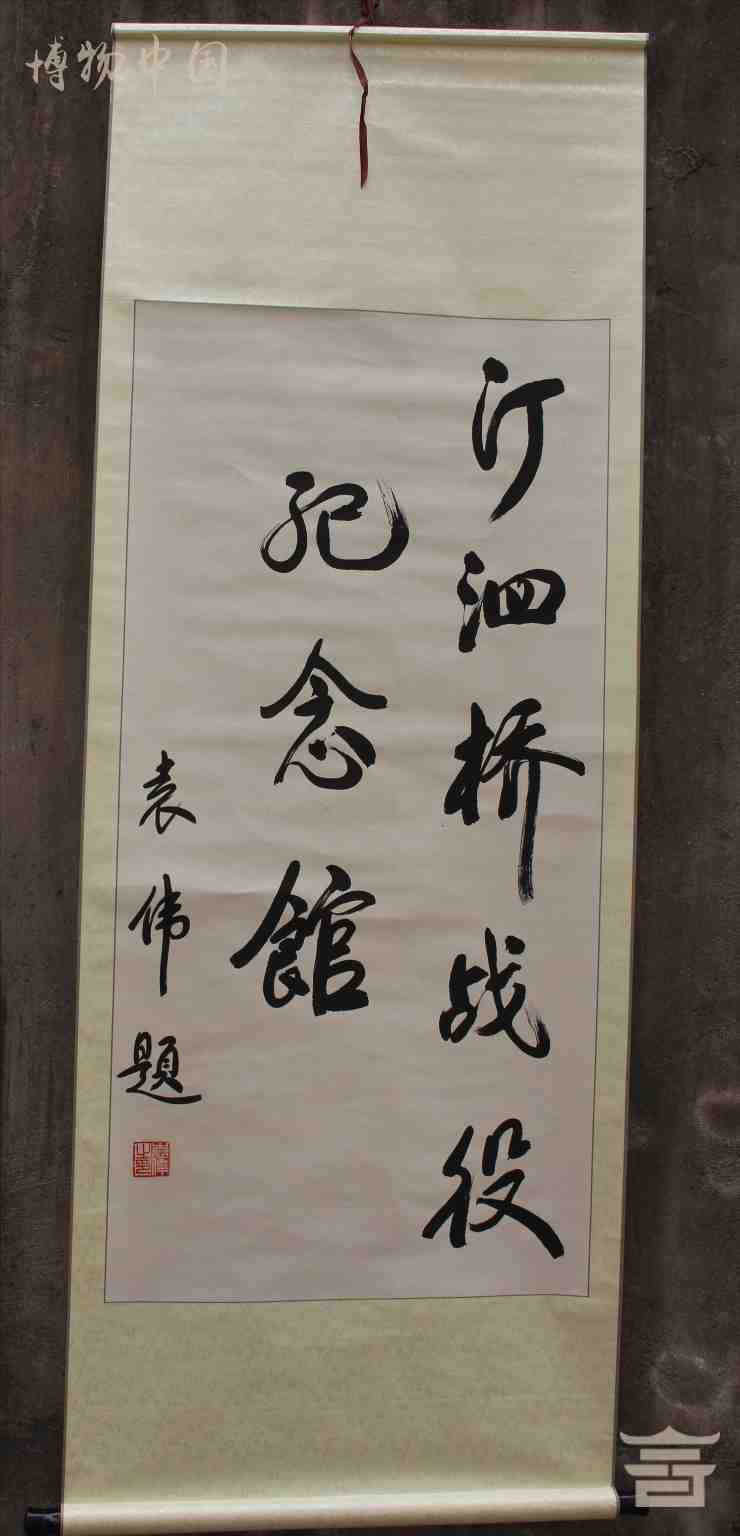 博物中国
汀泗桥战役
纪念館
袁伟題